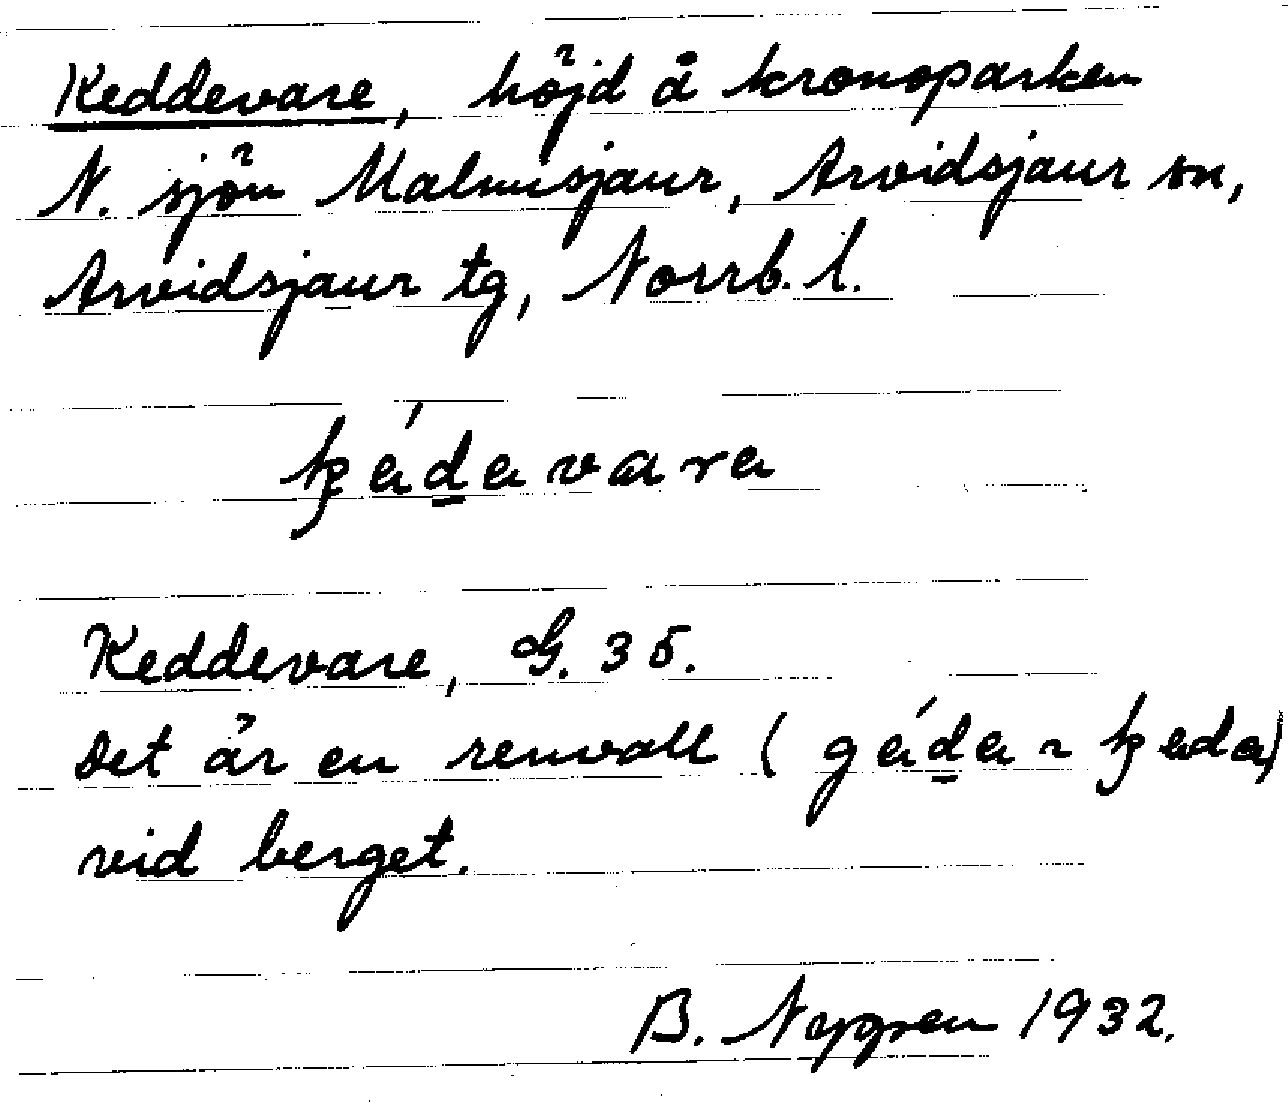 Keddevare, höjd å kronoparken
N. sjön Malmisjaur, Arvidsjaur sn,
Arvidsjaur tg, Norrb. l.
ḱád̲avara
Keddevare, G. 35.
Det är en renvall (gád̲a ~ ḱada)
vid berget.
B. Nygren 1932.